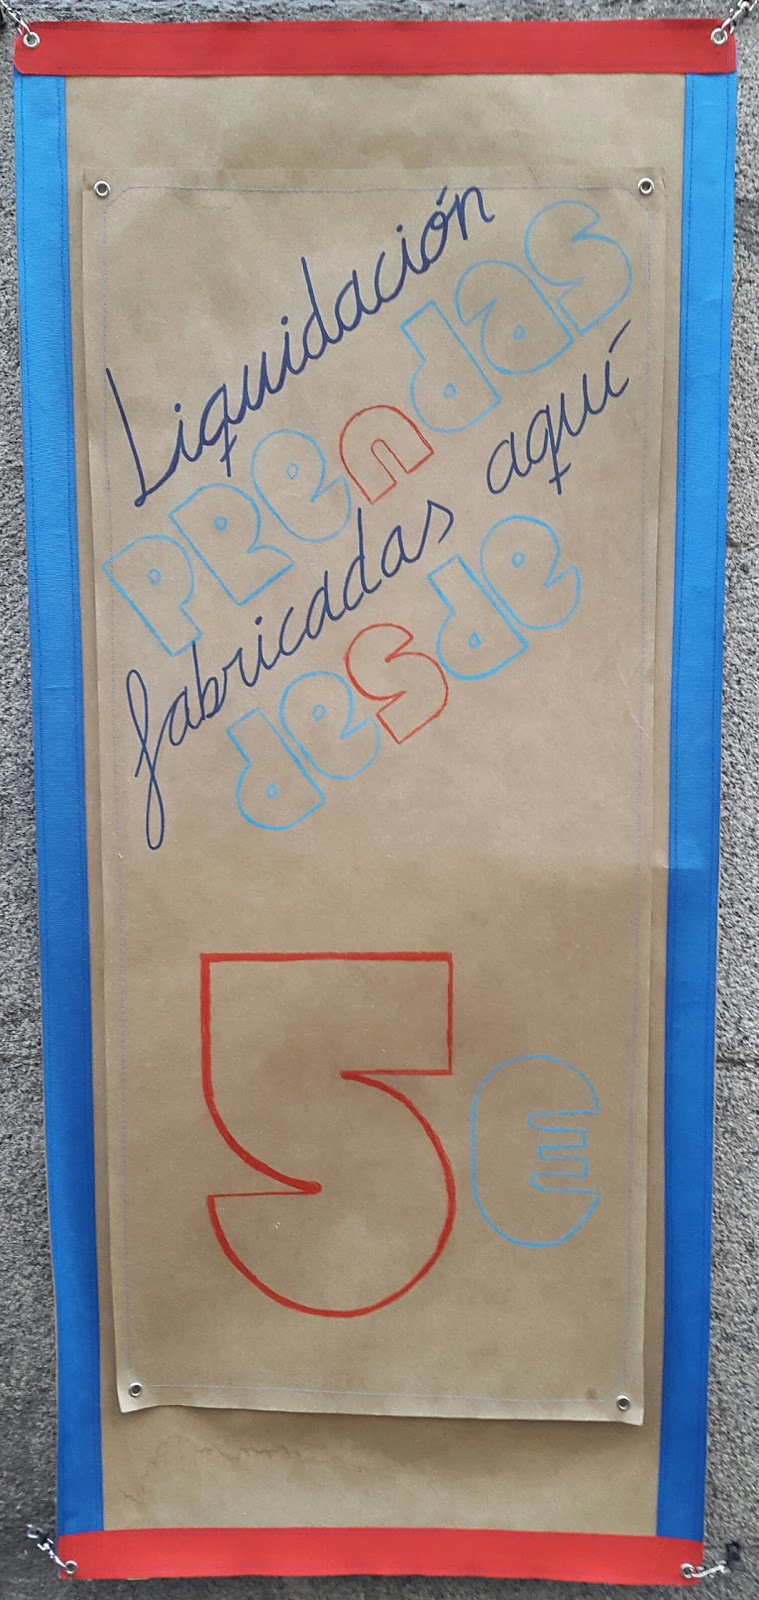 Liquidación
PRendas
fabricadas aquí
desde
5€